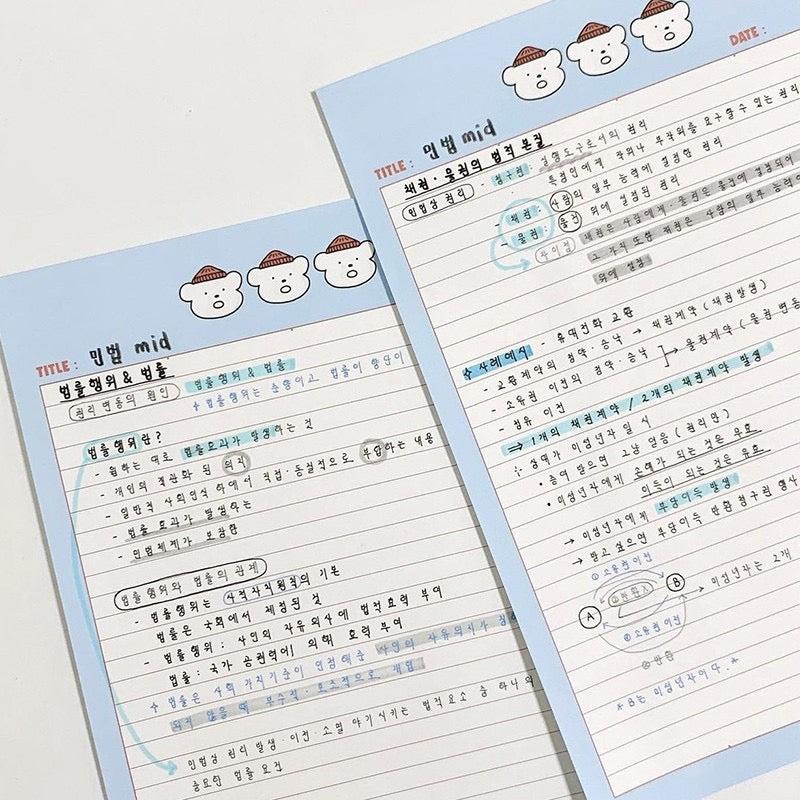 TITLE : 민법 mid
법률행위 & 법률
권리변동의 원인
법률행위 & 법률
* 법률행위는 순방이고 법률이
법률행위란?
- 원하는 대로 법률효과가 발생하는 것
- 개인의 객관화 된 의사
- 일반적 사회인식 하에서 직접·동질적으로 부합하는 내용
- 법률 효과가 발생하는
- 민법체계가 보장한
법률행위와 법률의 관계
- 법률행위는 사적자치원칙의 기본
법률은 국회에서 제정된 것
- 법률행위 : 사인의 자유의사에 법적효력 부여
법률 : 국가 공권력에 의해 효력 부여
* 법률은 사회 가치기준이 인정해준 사인의 자유의사가
되지 않을 때 부수적·보조적으로 개입
민법상 권리 발생·이전·소멸 야기시키는 법적요소 중 하나의
중요한 법률 요건
DATE :
TITLE : 민법 mid
채권·물권의 법적 본질
민법상 권리 - 청구권 : 실행도구로서의 권리
특정인에게 작위나 부작위를 요구할 수 있는 권리
- 채권 : 사람의 일부 능력에 설정한 권리
- 물권 : 물건 위에 설정된 권리
차이점 채권은 사람에게·물권은 물건에 설정되어
그 가치 또한 채권은 사람의 일부 능력
위에 설정
☆사례예시 - 휴대전화 교환
- 교환계약의 청약·승낙 → 채권계약 (채권발생)
- 소유권 이전의 청약·승낙 → 물권계약 (물권 변동
- 점유 이전
⇒ 1개의 채권계약 / 2개의 채권계약 발생
∴ 상대가 미성년자 일 시
• 증여 받으면 그냥 얻음 (권리만)
• 미성년자에게 손해가 되는 것은 무효
이득이 되는 것은 유효
→ 미성년자에게 부당이득 발생
→ 받고 싶으면 부당이득 반환 청구권 행사
① 소유권이전
A B
② 소유권 이전
→ 미성년자는 2개
* B는 미성년자이다. *